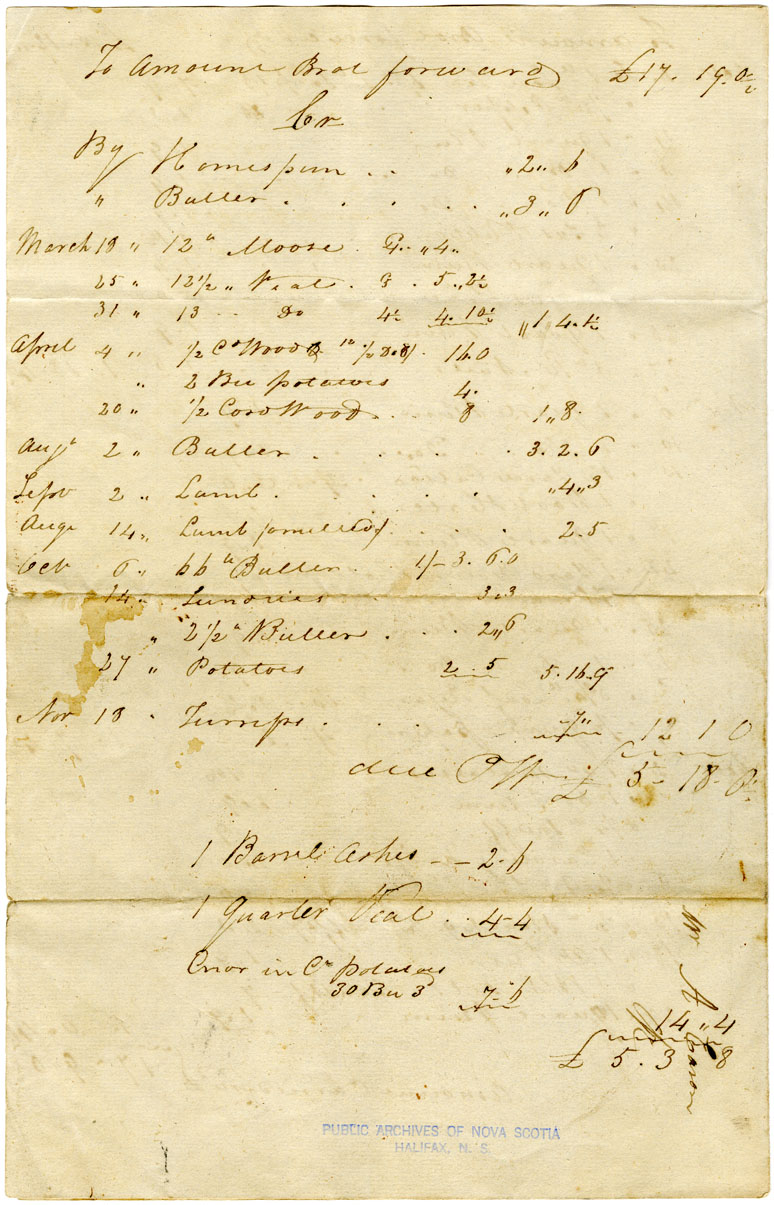 To Amount Brot forward £17. 19. 0½
Cr
By Homespun . . „2„ 6
„ Butter . . . . . „3„ 6
March 18 „ 12 lb Moose . 4. „4„
25 „ 12½ „ Veal . 5 . 5 „ 2½
31 „ 13 . . Do 4½ 4. 10½ „1 4. ½
April 4 „ ½ Cd Wood 16. 0
„ 2 Bu potatoes 4.
20 „ ½ Cord Wood . . 8 1„ 8.
Augt 2 „ Butter . . . . 3. 2. 6
Sepr 2 „ Lamb . . . . . „4„3
Augt 14 „ Lamb . . . 2. 5
Oct 6 „ 66 lb Butter . . 1/- 3. 6. 0
14 „ Sundries 3„3
„ 2½ lb Butter . . . 2„6
27 „ Potatoes 2. 5 5. 16. 9
Nov 18 „ Turnips . . . „7„ 12 1 0
due £ 5 „ 18. 0½
1 Barrel Ashes - - 2. 6
1 quarter Veal . . 4-4
Error in Cr potatoes
30 Bu 3 7- 6
14 „4
£ 5. 3 8
Mr A
PUBLIC ARCHIVES OF NOVA SCOTIA
HALIFAX, N. S.